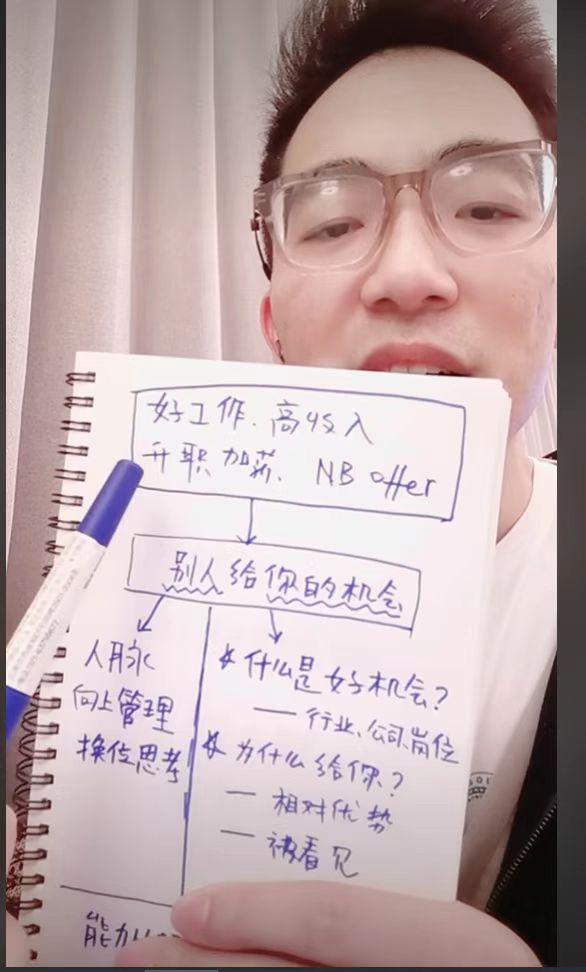 好工作、高收入
升职加薪、NB offer
别人给你的机会
人脉
向上管理
换位思考
* 什么是好机会?
— 行业、公司、岗位
* 为什么给你?
— 相对优势
— 被看见
能力